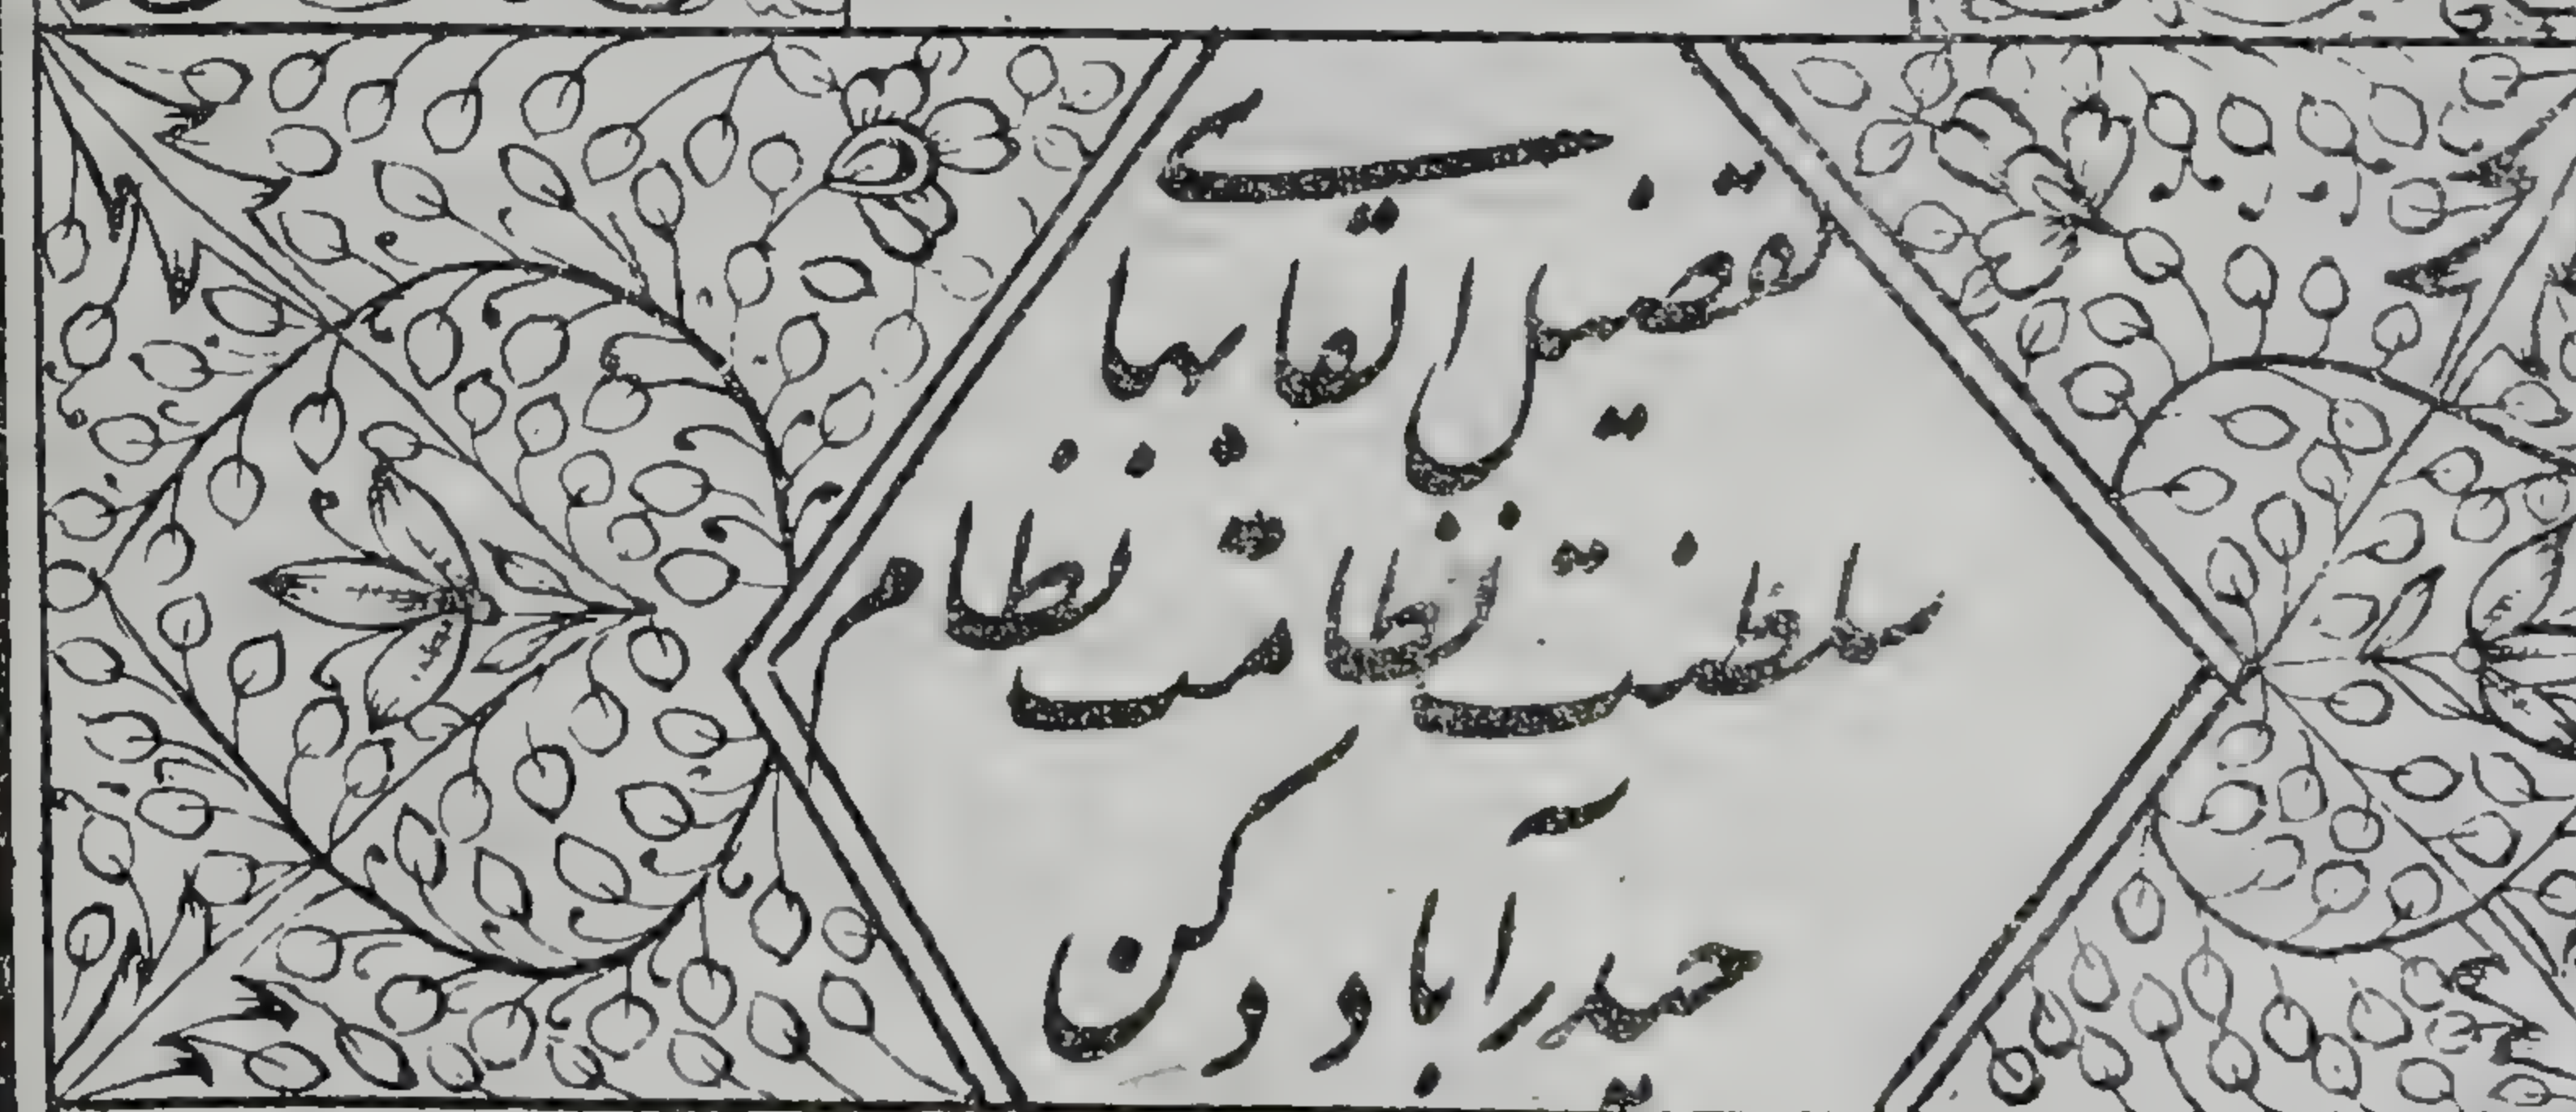 تفصیل القابہاے
سلطنت نظامت نظام
حیدرآباد دکن